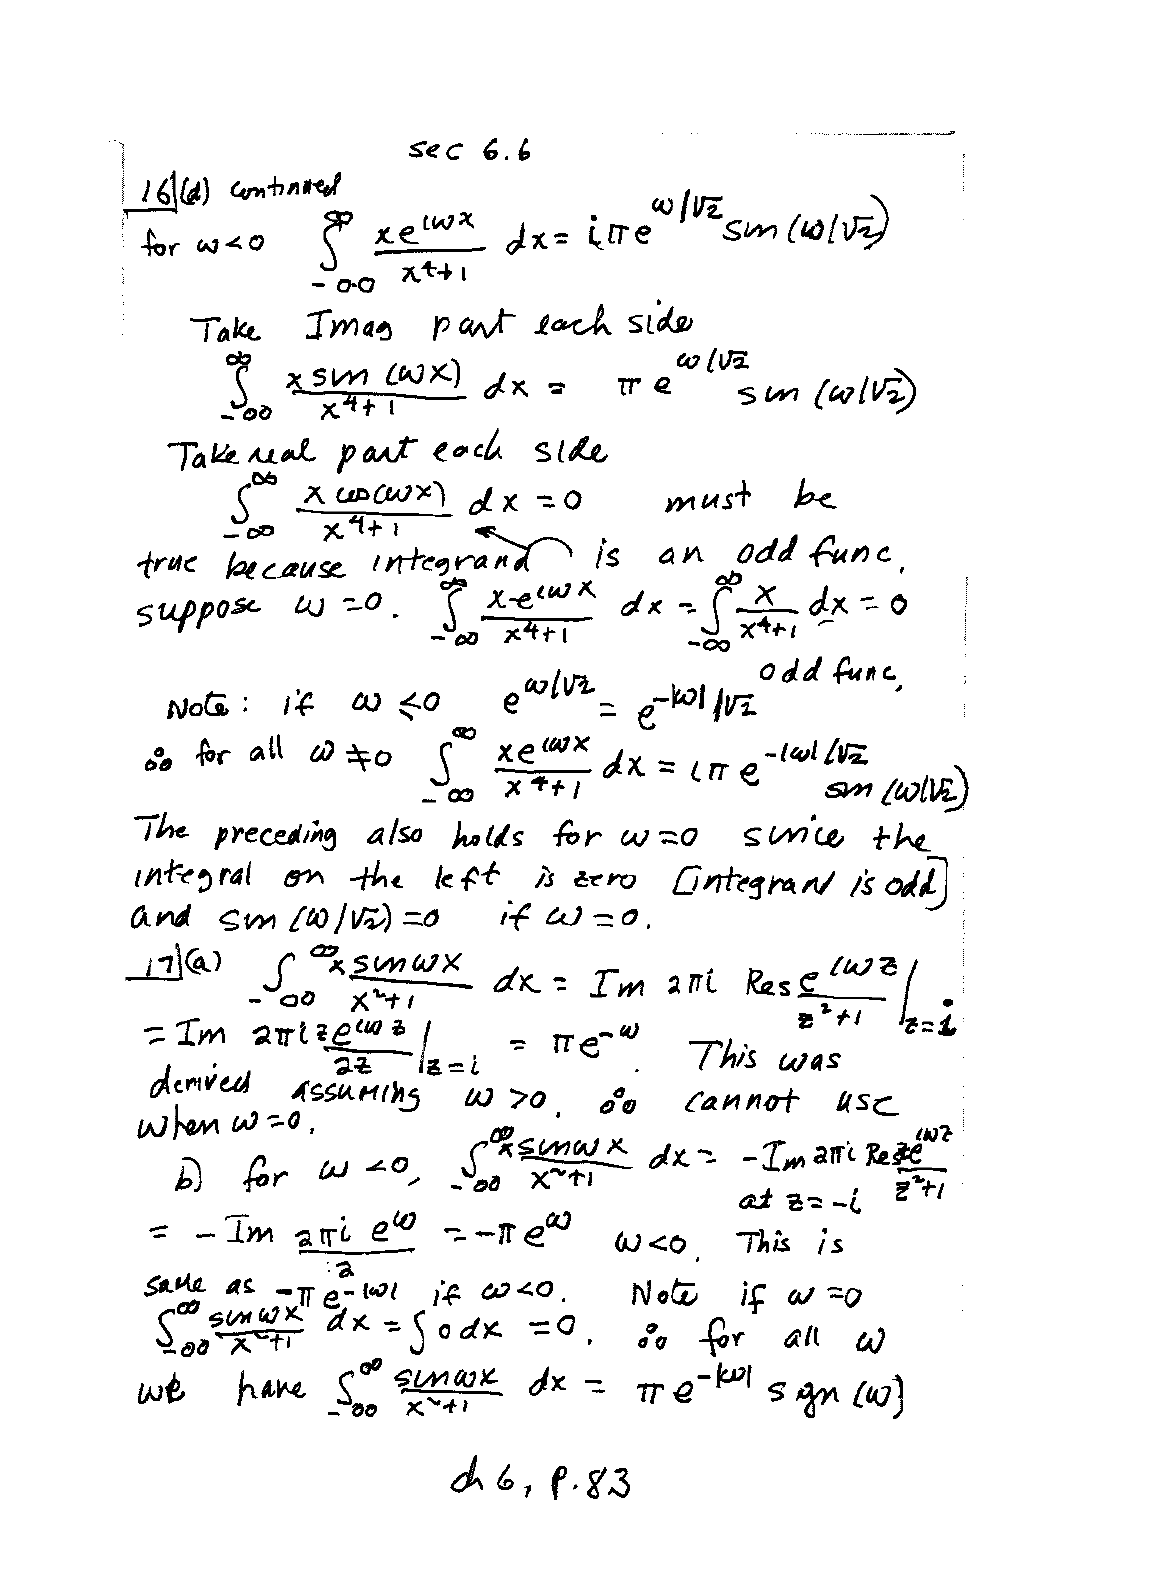 sec 6.6
16(d) continued
for ω<0 ∫_{-∞}^{∞} xe^{iωx}/(x⁴+1) dx = iπe^{ω/√2} sin(ω/√2)
Take Imag part each side
∫_{-∞}^{∞} x sin(ωx)/(x⁴+1) dx = πe^{ω/√2} sin(ω/√2)
Take real part each side
∫_{-∞}^{∞} x cos(ωx)/(x⁴+1) dx = 0 must be
true because integrand is an odd func.
suppose ω=0. ∫_{-∞}^{∞} xe^{iωx}/(x⁴+1) dx = ∫_{-∞}^{∞} x/(x⁴+1) dx = 0
odd func.
Note: if ω≤0 e^{ω/√2} = e^{-|ω|/√2}
∴ for all ω≠0 ∫_{-∞}^{∞} xe^{iωx}/(x⁴+1) dx = iπe^{-|ω|/√2} sin(ω/√2)
The preceding also holds for ω=0 since the
integral on the left is zero [integrand is odd]
and sin(ω/√2)=0 if ω=0.
17(a) ∫_{-∞}^{∞} x sinωx/(x²+1) dx = Im 2πi Res e^{iωz}/(z²+1)|_{z=i}
= Im 2πi ze^{iωz}/2z|_{z=i} = πe^{-ω}. This was
derived assuming ω>0, ∴ cannot use
when ω=0.
b) for ω<0, ∫_{-∞}^{∞} x sinωx/(x²+1) dx = -Im 2πi Res ze^{iωz}/(z²+1)
at z=-i
= -Im 2πi e^{ω}/2 = -πe^{ω} ω<0. This is
same as -πe^{-|ω|} if ω<0. Note if ω=0
∫_{-∞}^{∞} sinωx/(x²+1) dx = ∫0dx = 0. ∴ for all ω
we have ∫_{-∞}^{∞} sinωx/(x²+1) dx = πe^{-|ω|} sgn(ω)
ch 6, p. 83